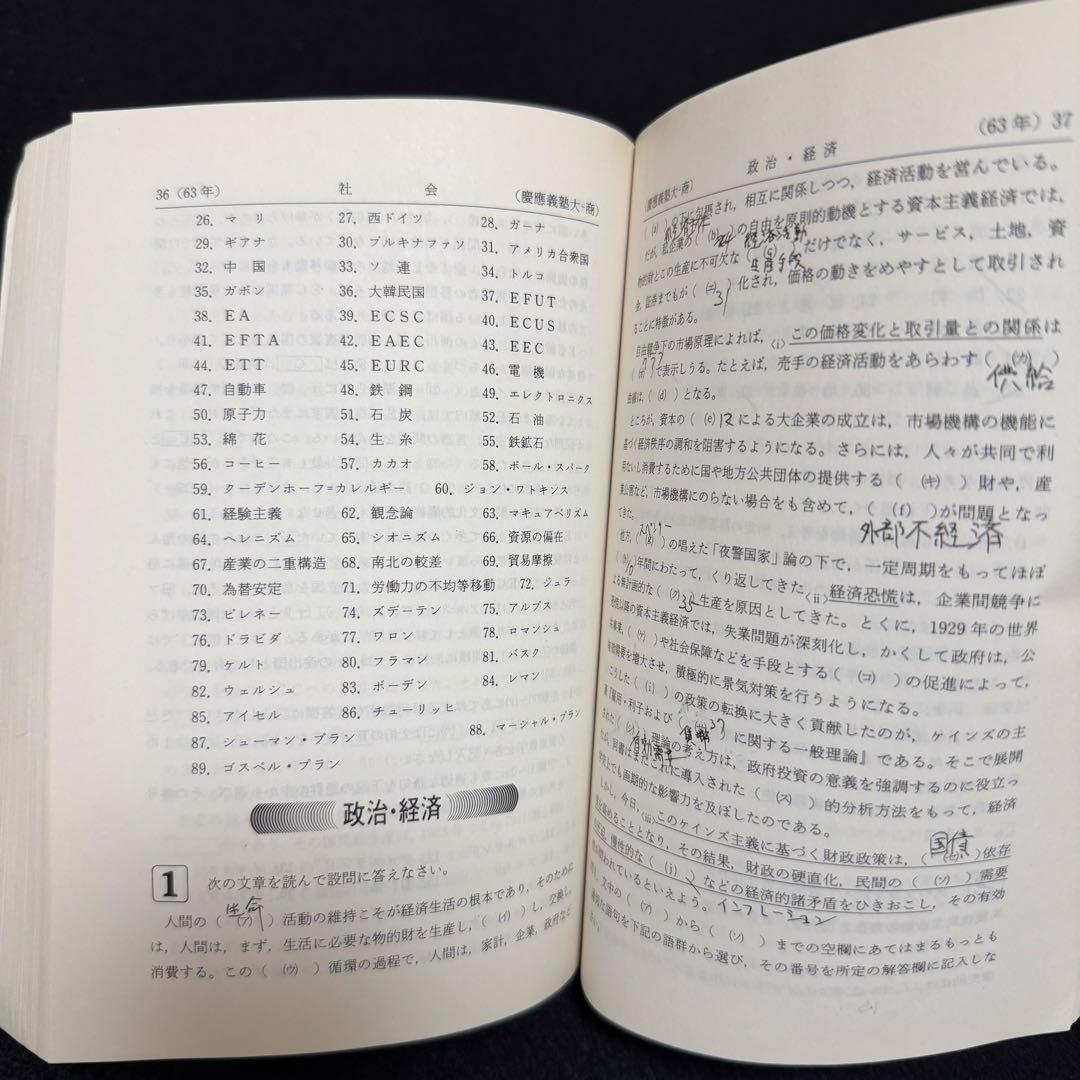 36 (63年) 社会 (慶應義塾大-商)
26. マリ 27. 西ドイツ 28. ガーナ
29. ギアナ 30. ブルキナファソ 31. アメリカ合衆国
32. 中国 33. ソ連 34. トルコ
35. ガボン 36. 大韓民国 37. EFUT
38. EA 39. ECSC 40. ECUS
41. EFTA 42. EAEC 43. EEC
44. ETT 45. EURC 46. 電機
47. 自動車 48. 鉄鋼 49. エレクトロニクス
50. 原子力 51. 石炭 52. 石油
53. 綿花 54. 生糸 55. 鉄鉱石
56. コーヒー 57. カカオ 58. ポール・スパーク
59. クーデンホーフ=カレルギー 60. ジョン・ワトキンス
61. 経験主義 62. 観念論 63. マキュアベリズム
64. ヘレニズム 65. シオニズム 66. 資源の偏在
67. 産業の二重構造 68. 南北の較差 69. 貿易摩擦
70. 為替安定 71. 労働力の不均等移動 72. ジュラ
73. ピレネー 74. ズデーテン 75. アルプス
76. ドラビダ 77. ワロン 78. ロマンシュ
79. ケルト 80. フラマン 81. バスク
82. ウェルシュ 83. ボーデン 84. レマン
85. アイセル 86. チューリッヒ
87. シューマン・プラン 88. マーシャル・プラン
89. ゴスペル・プラン
政治・経済
1 次の文章を読んで設問に答えなさい。
人間の( 生命 )活動の維持こそが経済生活の根本であり,そのために
は,人間は,まず,生活に必要な物的財を生産し,( (イ) )し,交換し,
消費する。この( (ウ) )循環の過程で,人間は,家計,企業,政府など
政治・経済 (63年) 37
(慶應義塾大-商)
の下に包摂され,相互に関係しつつ,経済活動を営んでいる。
だが,私企業の( (b) 24 経済活動 )の自由を原則的動機とする資本主義経済では,
物的財とこの生産に不可欠な 生産手段 だけでなく,サービス,土地,資
金,証券までもが( (ニ) 31 )化され,価格の動きをめやすとして取引され
ることに特徴がある。
自由競争下の市場原理によれば,〈i〉この価格変化と取引量との関係は
で表示しうる。たとえば,売手の経済活動をあらわす( (カ) ) 供給
曲線は,( (d) )となる。
ところが,資本の( (e) 12 による大企業の成立は,市場機構の機能に
基づく経済秩序の調和を阻害するようになる。さらには,人々が共同で利
用ないし消費するために国や地方公共団体の提供する( (キ) )財や,産
業公害など,市場機構にのらない場合をも含めて,( (f) )が問題となっ
てきた。 外部不経済
他方,の唱えた「夜警国家」論の下で,一定周期をもってほぼ
(h) 10 年間にわたって,くり返してきた〈ii〉経済恐慌は,企業間競争に
よる無計画的な( (ク) 35 生産を原因としてきた。とくに,1929年の世界
恐慌以降の資本主義経済では,失業問題が深刻化し,かくして政府は,公
共事業,( (ケ) や社会保障などを手段とする( (コ) )の促進によって,
有効需要を増大させ,積極的に景気対策を行うようになる。
こうした( (i) )の政策の転換に大きく貢献したのが,ケインズの主
著『雇用・利子および 貨幣 37 に関する一般理論』である。そこで展開
された 有効需要 理論の考え方は,政府投資の意義を強調するのに役立っ
たが,同書はまたこれに導入された( (ス) )的分析方法をもって,経済
学史上でも画期的な影響力を及ぼしたのである。
しかし,今日,〈iii〉このケインズ主義に基づく財政政策は,( 国債 )依存
を高めることとなり,その結果,財政の硬直化,民間の( (ソ) )需要
の圧迫,慢性的な( (j) )などの経済的諸矛盾をひきおこし,その有効
が問われているといえよう。 インフレーション
文中の( (ア) )から( (ソ) )までの空欄にあてはまるもっとも
適切な語句を下記の語群から選び,その番号を所定の解答欄に記入しな
さい。